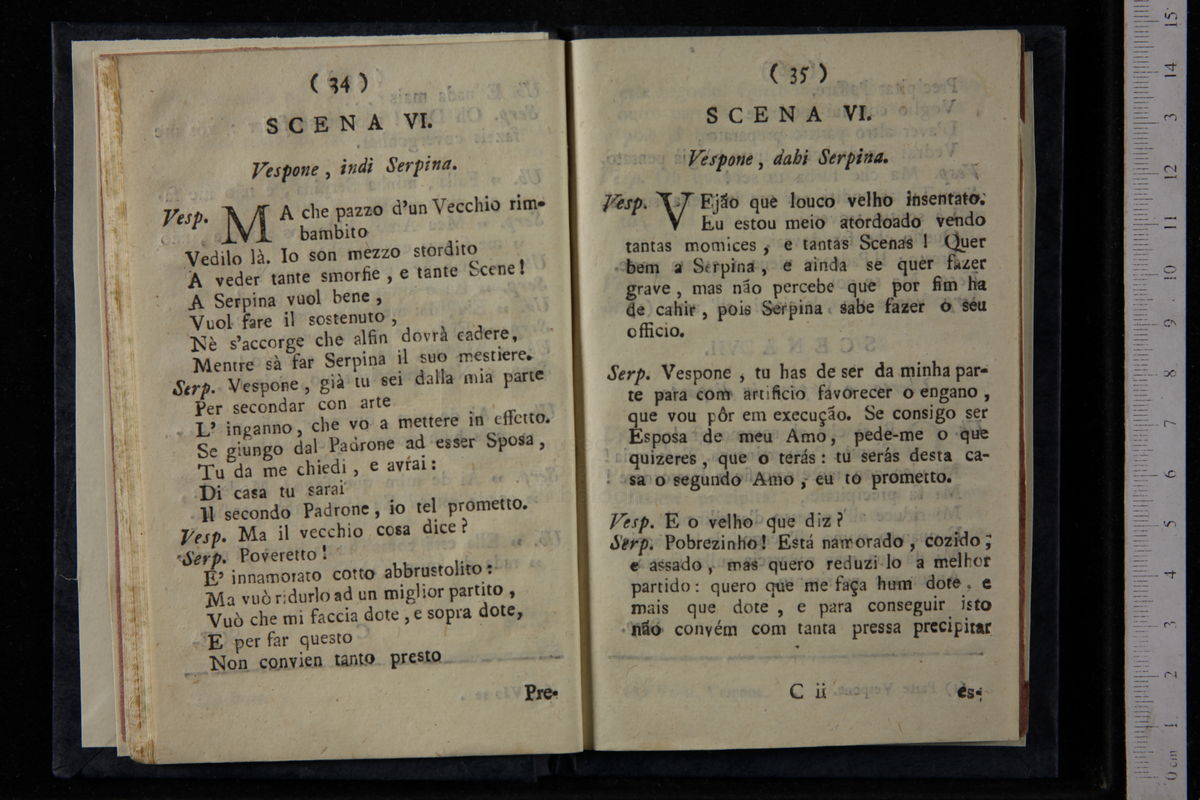 ( 34 )
SCENA VI.
Vespone, indi Serpina.
Vesp. MA che pazzo d'un Vecchio rim-
bambito
Vedilo là. Io son mezzo stordito
A veder tante smorfie, e tante Scene!
A Serpina vuol bene,
Vuol fare il sostenuto,
Nè s'accorge che alfin dovrà cadere,
Mentre sà far Serpina il suo mestiere.
Serp. Vespone, già tu sei dalla mia parte
Per secondar con arte
L' inganno, che vo a mettere in effetto.
Se giungo dal Padrone ad esser Sposa,
Tu da me chiedi, e avrai:
Di casa tu sarai
Il secondo Padrone, io tel prometto.
Vesp. Ma il vecchio cosa dice?
Serp. Poveretto!
E' innamorato cotto abbrustolito:
Ma vuò ridurlo ad un miglior partito,
Vuò che mi faccia dote, e sopra dote,
E per far questo
Non convien tanto presto
Pre-
( 35 )
SCENA VI.
Vespone, dahi Serpina.
Vesp. VEjão que louco velho insentato.
Eu estou meio atordoado vendo
tantas momices, e tantas Scenas! Quer
bem a Serpina, e ainda se quer fazer
grave, mas não percebe que por fim ha
de cahir, pois Serpina sabe fazer o seu
officio.
Serp. Vespone, tu has de ser da minha par-
te para com artificio favorecer o engano,
que vou pôr em execução. Se consigo ser
Esposa de meu Amo, pede-me o que
quizeres, que o terás: tu serás desta ca-
sa o segundo Amo, eu to prometto.
Vesp. E o velho que diz?
Serp. Pobrezinho! Está namorado, cozido;
e assado, mas quero reduzi lo a melhor
partido: quero que me faça hum dote, e
mais que dote, e para conseguir isto
não convém com tanta pressa precipitar
C ii
es-
0 cm 1 2 3 4 5 6 7 8 9 10 11 12 13 14 15